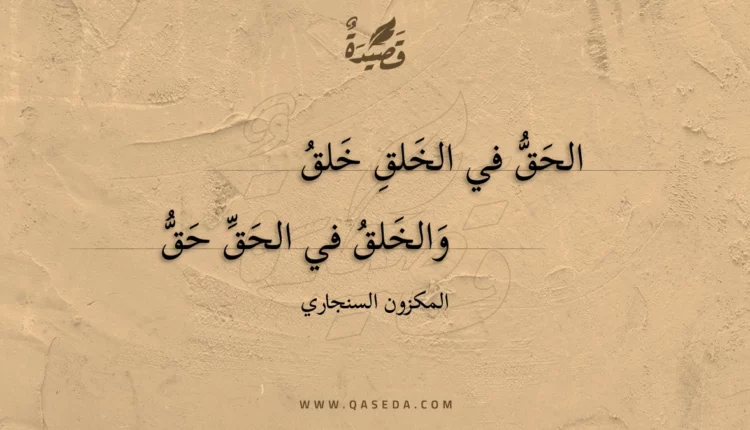 قَصِيدَةٌ
الحَقُّ في الخَلقِ خَلقُ
وَالخَلقُ في الحَقِّ حَقُّ
المكزون السنجاري
WWW.QASEDA.COM